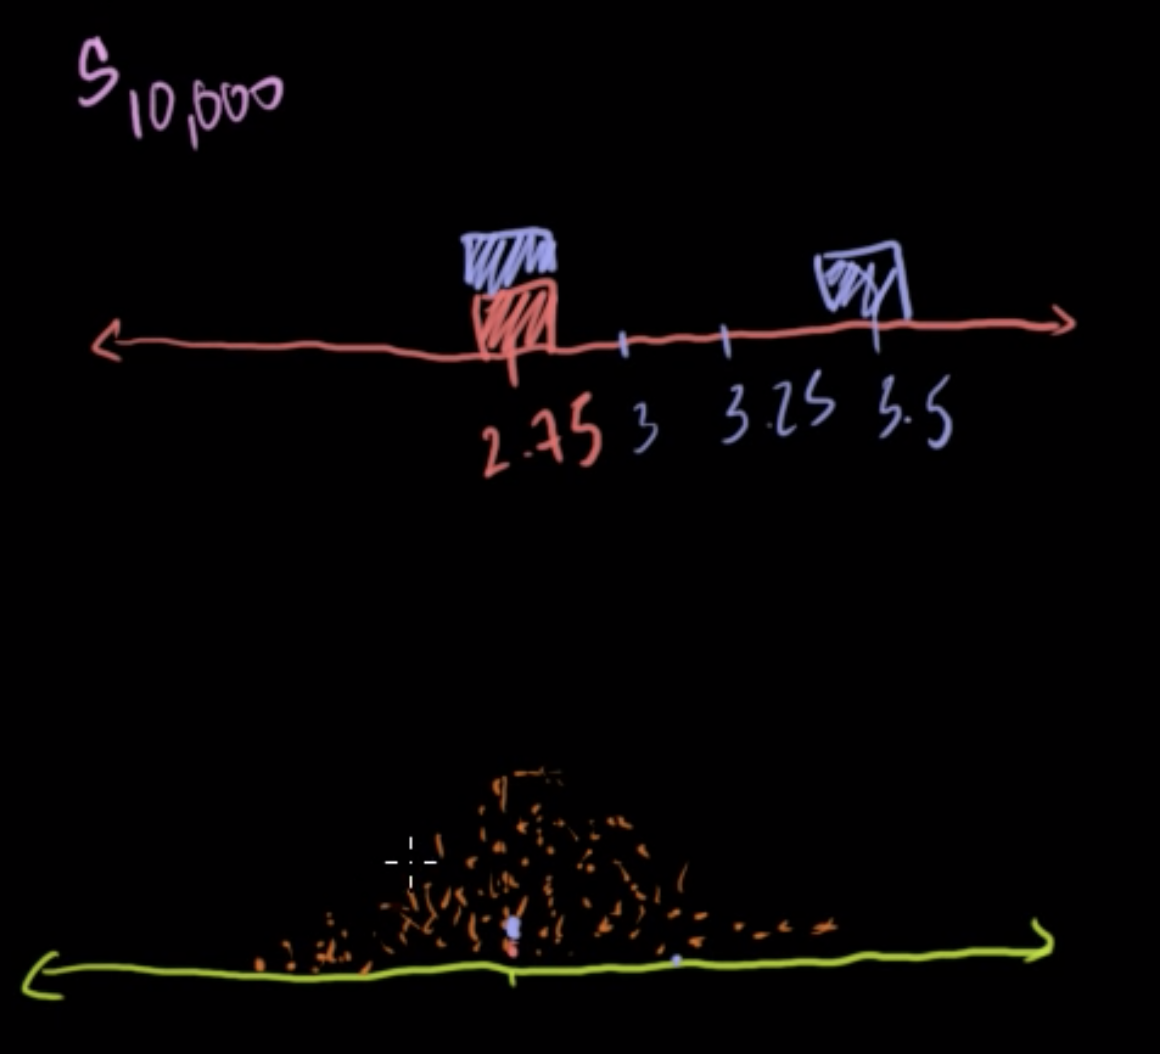 S10,000
2.75 3 3.25 3.5